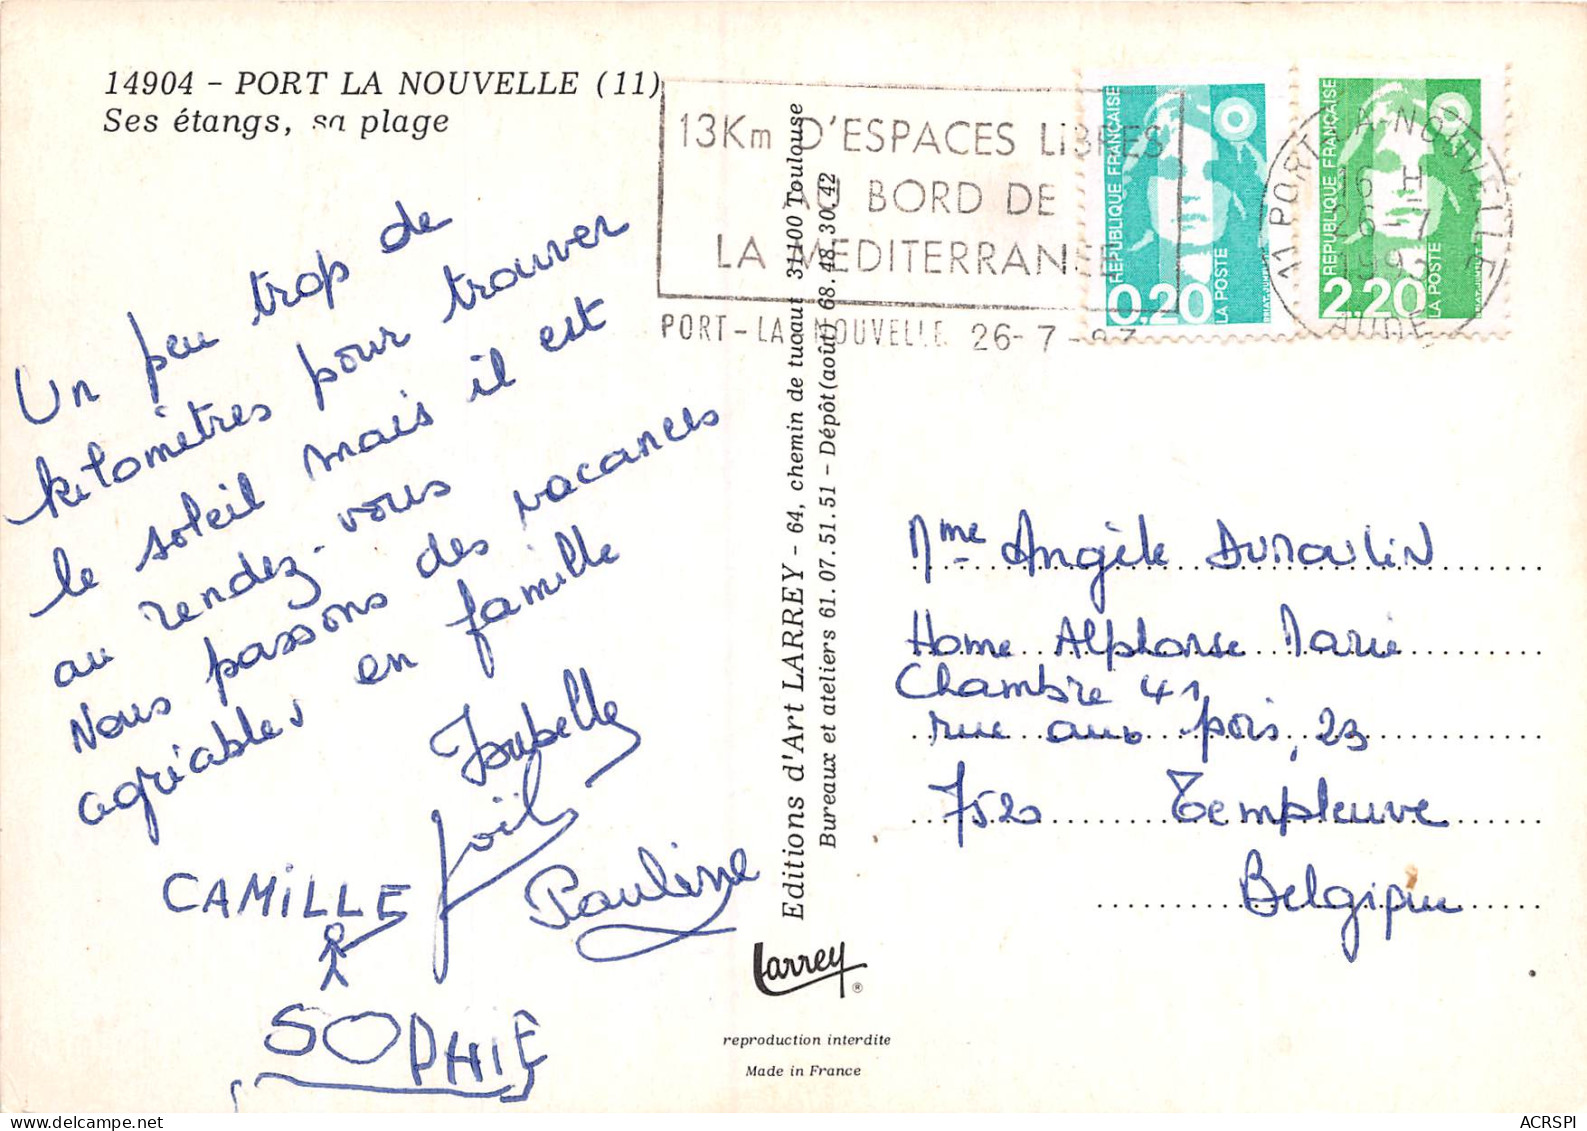 14904 - PORT LA NOUVELLE (11)
Ses étangs, sa plage
Un peu trop de
kilomètres pour trouver
le soleil mais il est
au rendez-vous
Nous passons des vacances
agréables en famille
Isabelle
Joël
CAMILLE
Pauline
SOPHIE
13Km D'ESPACES LiBRES
AU BORD DE
LA MEDITERRANEE
PORT-LA NOUVELLE 26-7-93
REPUBLIQUE FRANÇAISE
0,20
LA POSTE
REPUBLIQUE FRANÇAISE
2,20
LA POSTE
11 PORT-LA-NOUVELLE
16 H
26-7
1993
AUDE
Editions d'Art LARREY - 64, chemin de tucaut 31100 Toulouse
Bureaux et ateliers 61.07.51.51 - Dépôt(août) 68.48.30.42
Larrey ®
reproduction interdite
Made in France
Mme Angèle
Home Alphonse Marie
Chambre 41
rue aux pois, 23
7520 Templeuve
Belgique
ACRSPI